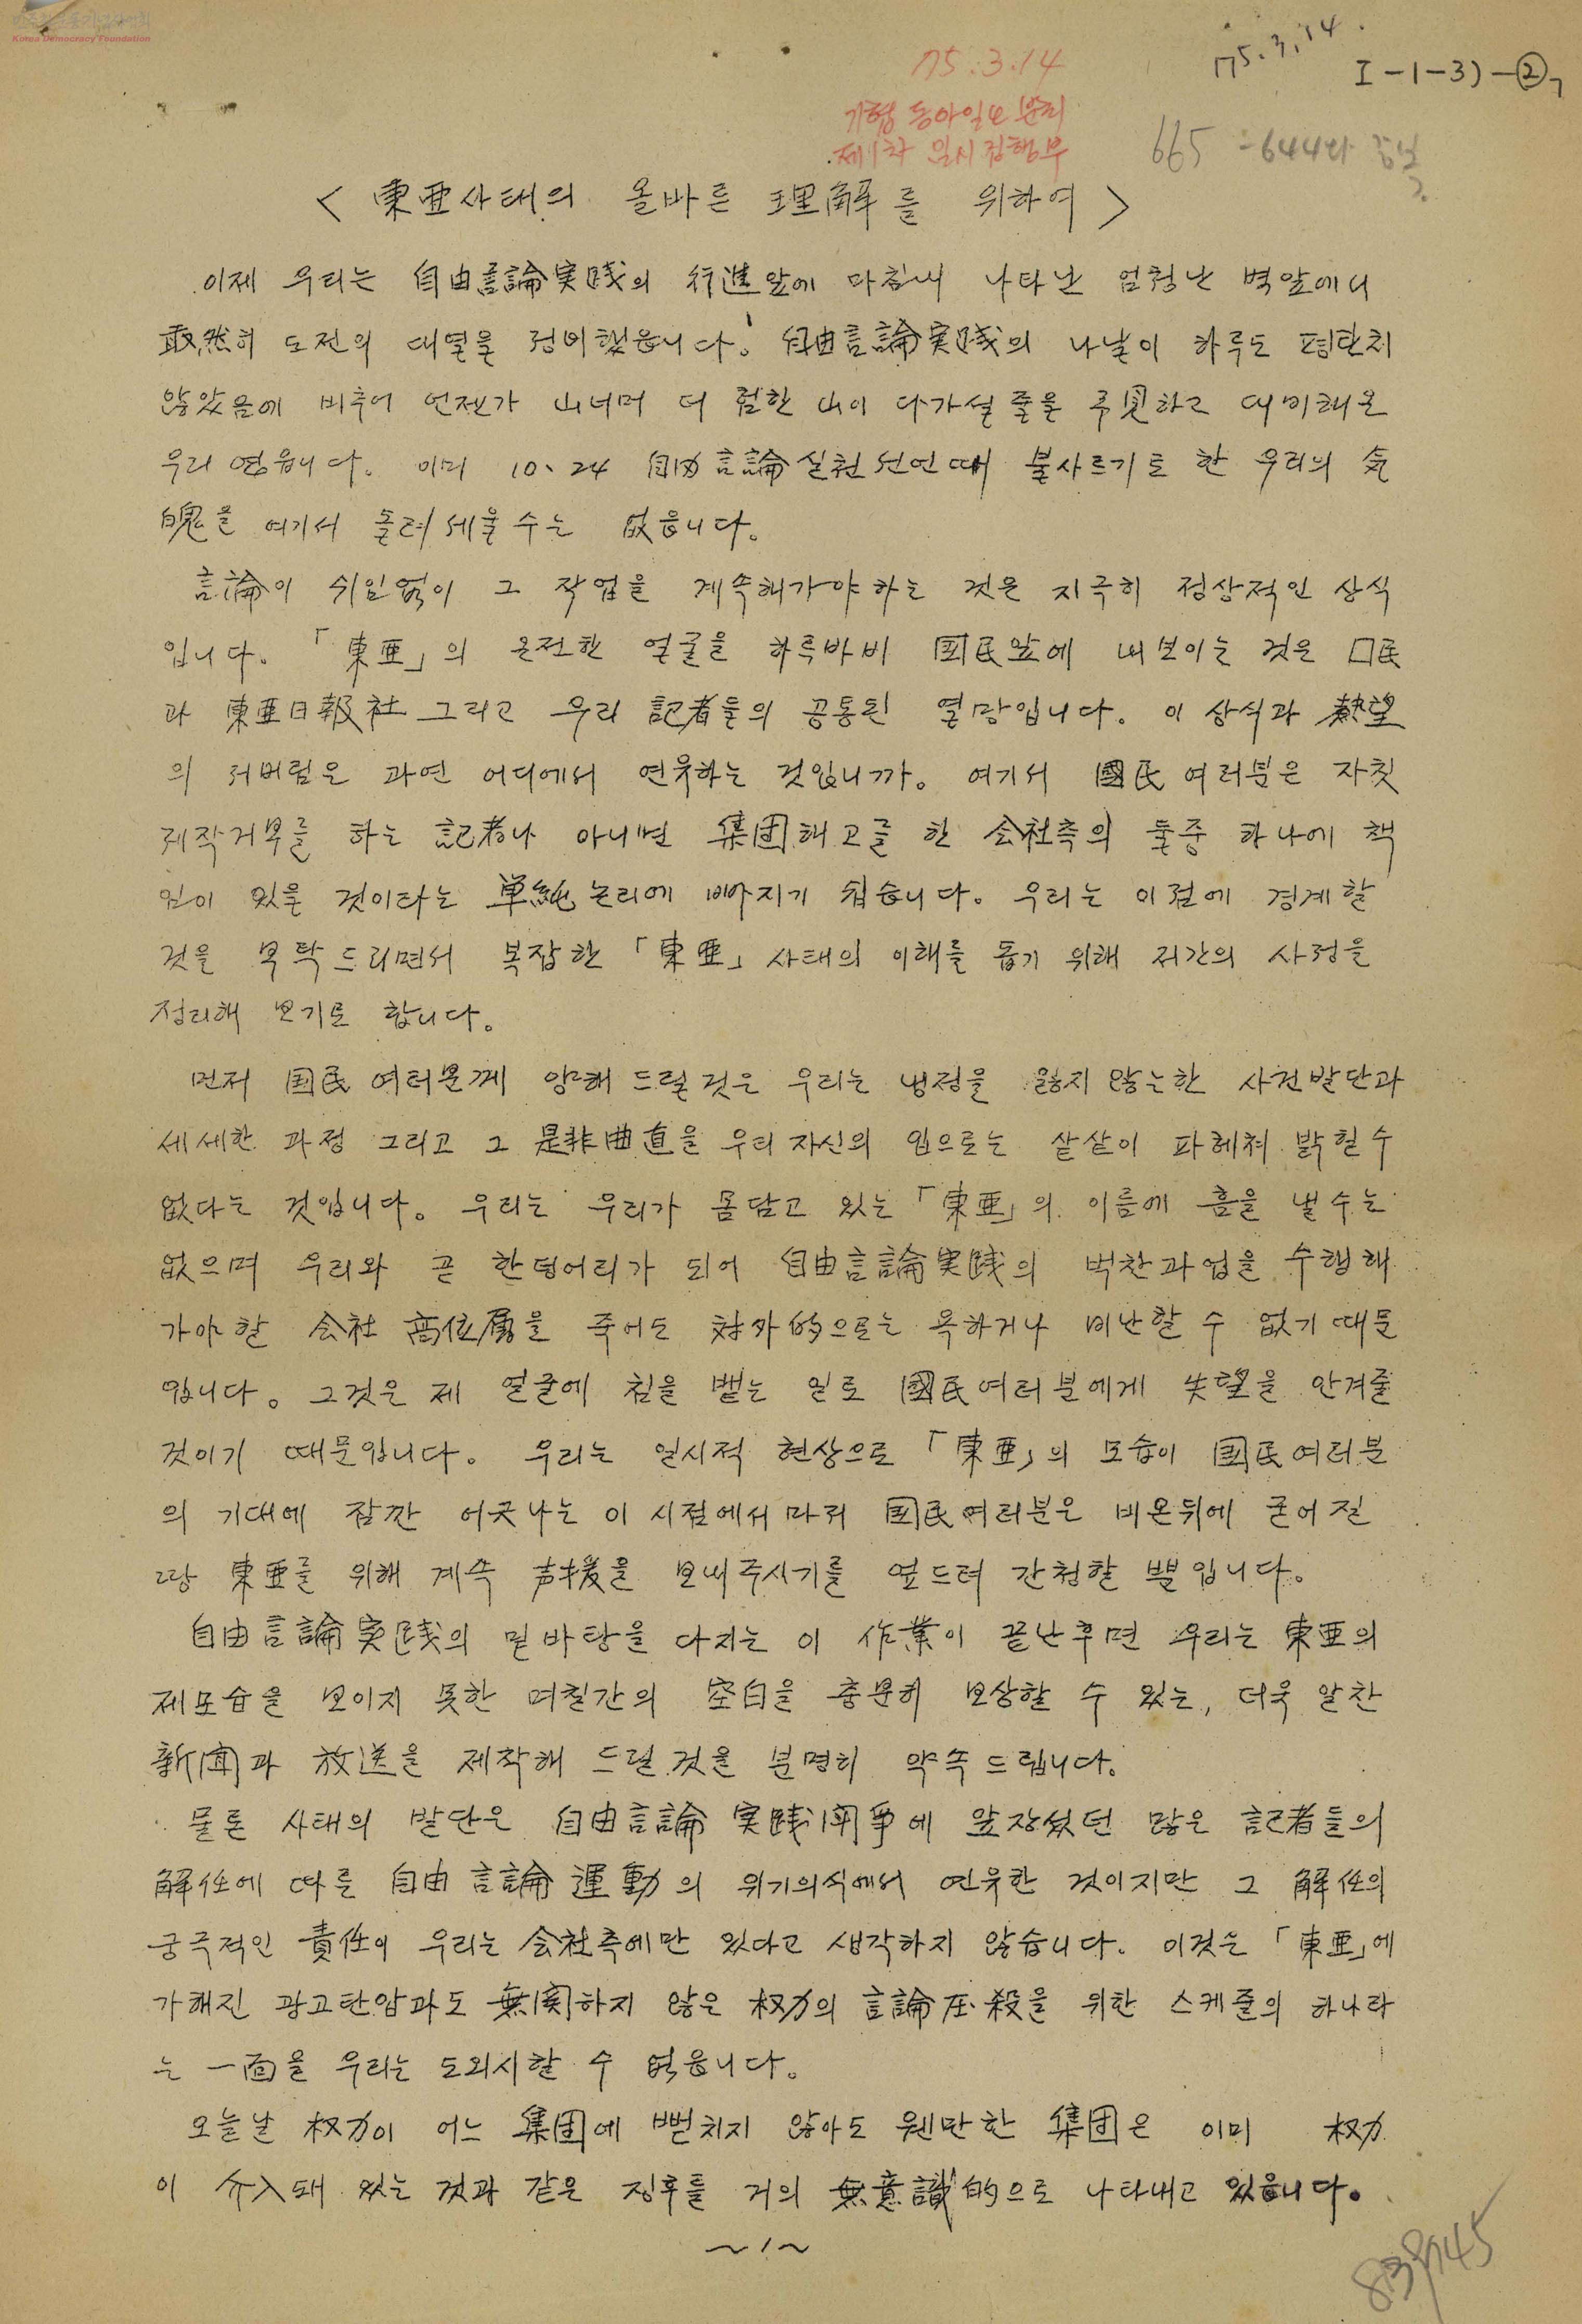 민주화운동기념사업회
Korea Democracy Foundation
75.3.14
75.3.14.
I-1-3)-②
기협 동아일보 분회
제1차 임시집행부
665 -644와 중복
< 東亜사태의 올바른 理解를 위하여 >
이제 우리는 自由言論実践의 行進앞에 마침내 나타난 엄청난 벽앞에서
敢然히 도전의 대열을 정비했읍니다. 自由言論実践의 나날이 하루도 평탄치
않았음에 비추어 언젠가 山너머 더 험한 山이 다가설 줄을 予見하고 대비해온
우리였읍니다. 이미 10、24 自由言論실천선언때 불사르기로 한 우리의 気
魄을 여기서 돌려세울 수는 없읍니다.
言論이 쉬임없이 그 작업을 계속해가야하는 것은 지극히 정상적인 상식
입니다. 「東亜」의 온전한 얼굴을 하루바삐 国民앞에 내보이는 것은 口民
과 東亜日報社 그리고 우리 記者들의 공통된 열망입니다. 이 상식과 熱望
의 저버림은 과연 어디에서 연유하는 것입니까. 여기서 國民 여러분은 자칫
제작거부를 하는 記者나 아니면 集団해고를 한 会社측의 둘중 하나에 책
임이 있을 것이라는 単純논리에 빠지기 쉽습니다. 우리는 이점에 경계할
것을 부탁드리면서 복잡한 「東亜」 사태의 이해를 돕기 위해 저간의 사정을
정리해 보기로 합니다.
먼저 国民 여러분께 양해 드릴것은 우리는 냉정을 잃지 않는한 사건발단과
세세한 과정 그리고 그 是非曲直을 우리 자신의 입으로는 샅샅이 파헤쳐 밝힐수
없다는 것입니다. 우리는 우리가 몸담고 있는 「東亜」의 이름에 흠을 낼수는
없으며 우리와 곧 한덩어리가 되어 自由言論実践의 벅찬과업을 수행해
가야할 会社 高位層을 죽어도 対外的으로는 욕하거나 비난할 수 없기 때문
입니다. 그것은 제 얼굴에 침을 뱉는 일로 國民여러분에게 失望을 안겨줄
것이기 때문입니다. 우리는 일시적 현상으로 「東亜」의 모습이 国民여러분
의 기대에 잠깐 어긋나는 이 시점에서마저 国民여러분은 비온뒤에 굳어질
땅 東亜를 위해 계속 声援을 보내주시기를 엎드려 간청할 뿐입니다.
自由言論実践의 밑바탕을 다지는 이 作業이 끝난후면 우리는 東亜의
제모습을 보이지 못한 며칠간의 空白을 충분히 보상할 수 있는, 더욱 알찬
新聞과 放送을 제작해 드릴것을 분명히 약속드립니다.
물론 사태의 발단은 自由言論 実践鬪爭에 앞장섰던 많은 記者들의
解任에 따른 自由言論運動의 위기의식에서 연유한 것이지만 그 解任의
궁극적인 責任이 우리는 会社측에만 있다고 생각하지 않습니다. 이것은 「東亜」에
가해진 광고탄압과도 無関하지 않은 权力의 言論圧殺을 위한 스케줄의 하나라
는 一面을 우리는 도외시할 수 없읍니다.
오늘날 权力이 어느 集団에 뻗치지 않아도 웬만한 集団은 이미 权力
이 介入돼 있는 것과 같은 징후를 거의 無意識的으로 나타내고 있읍니다.
~1~